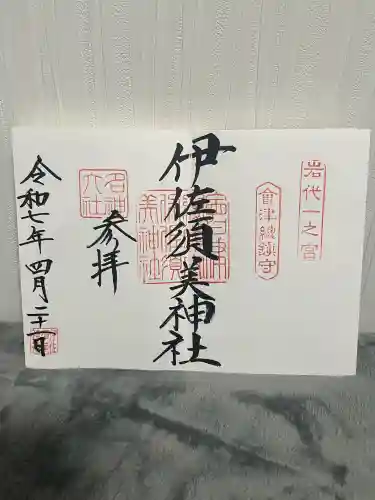 岩代一之宮
會津総鎮守
伊佐須美神社
参拝
名神
大社
令和七年四月二十一日